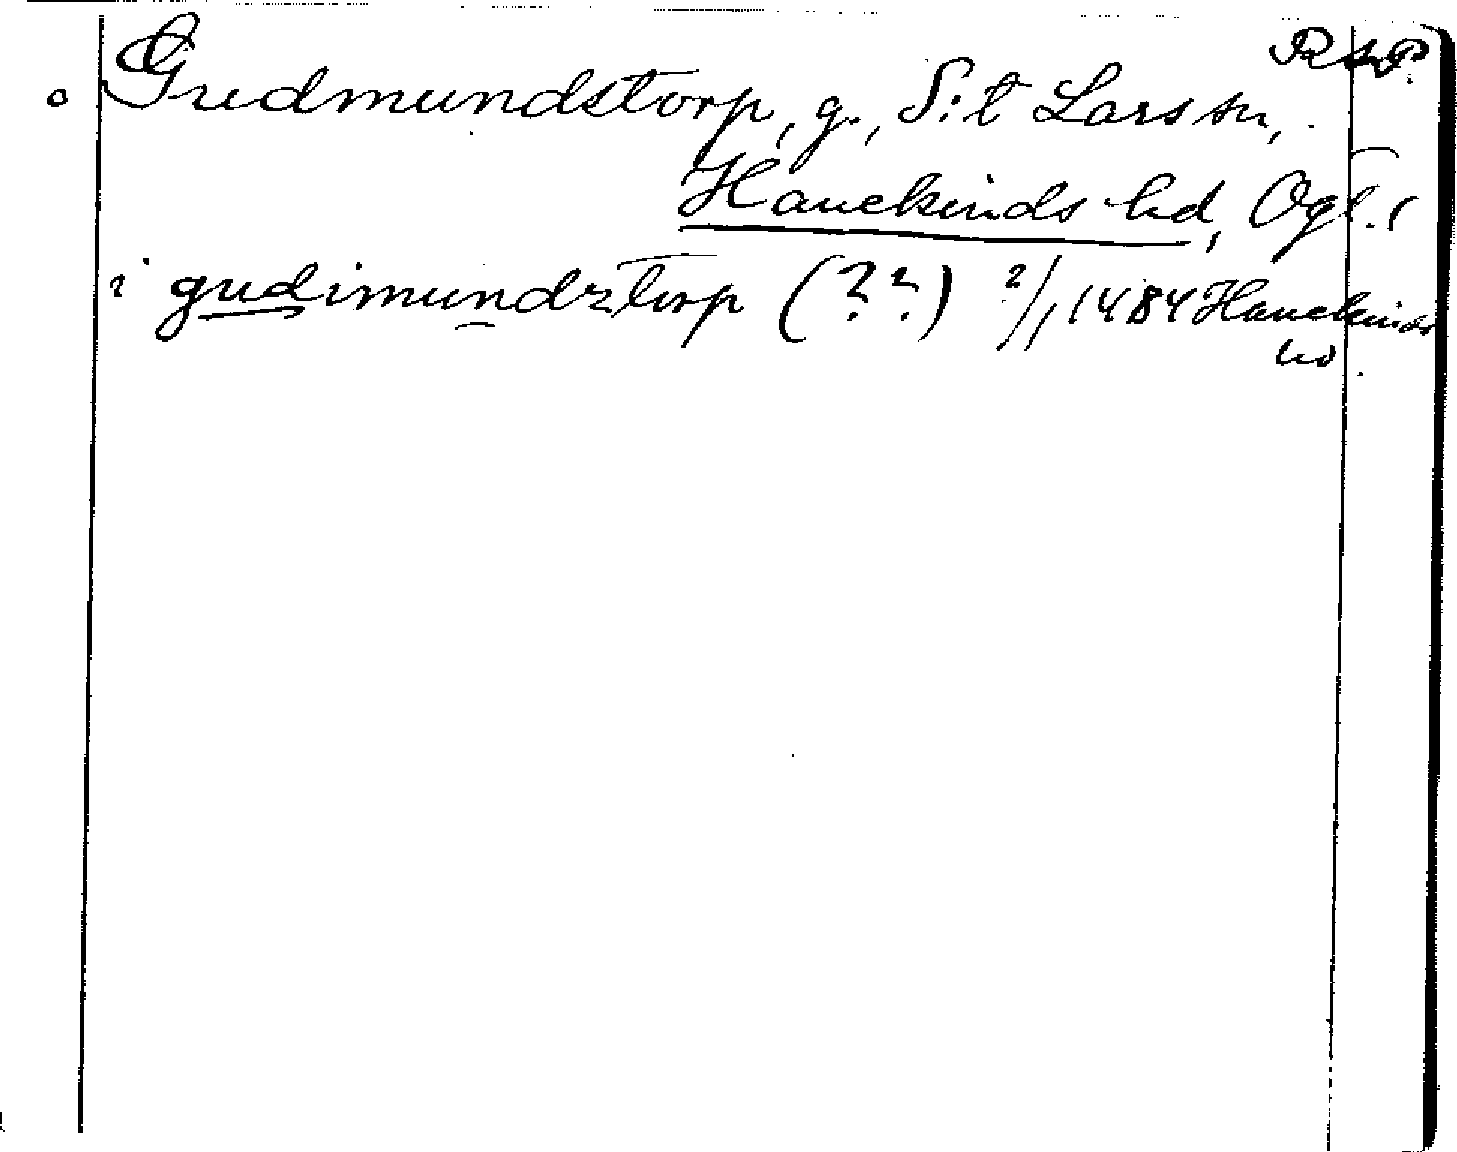 RAP.
o Gudmundstorp, g., S:t Lars sn,
Hanekinds hd, Ögl.
i gudimundztorp (??) 2/1 1484 Hanekinds
hd